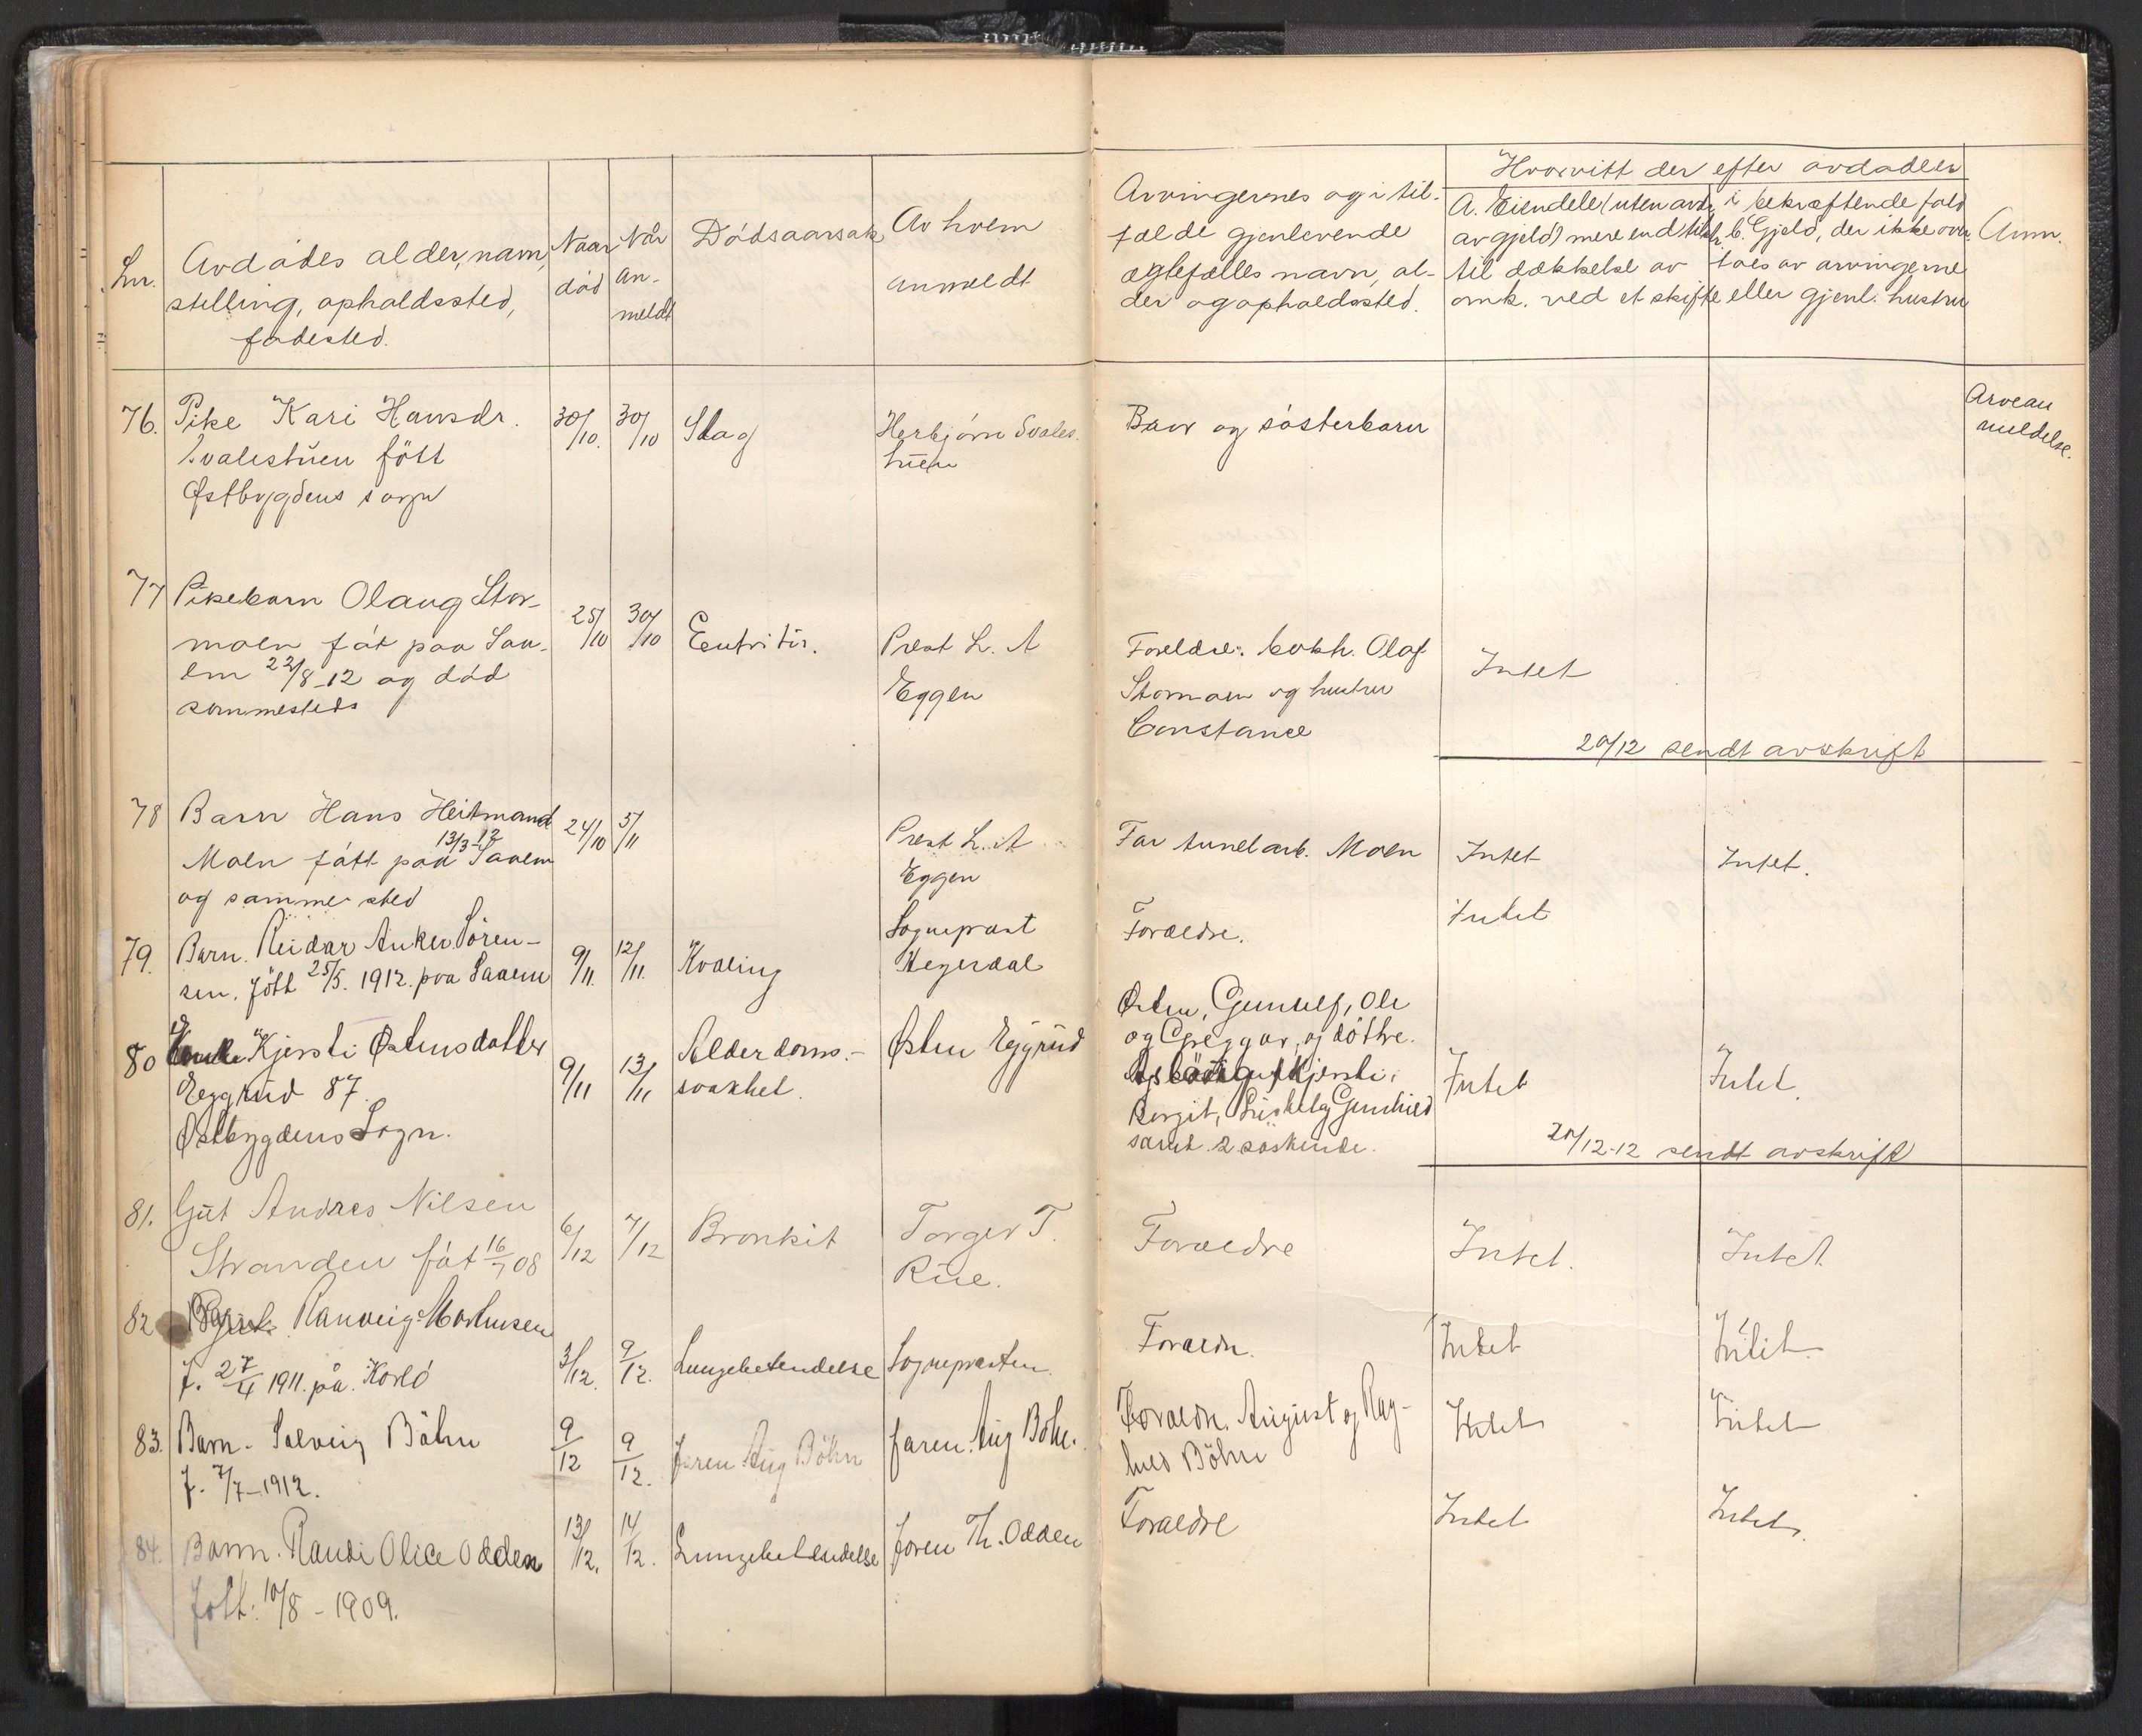 Lnr.
Avdødes alder, navn,
stilling, opholdssted,
fødested.
Naar
død
Når
an-
meldt
Dødsaarsak
Av hvem
anmeldt
Arvingernes og i til-
fælde gjenlevende
ægtefælles navn, al-
der og opholdssted.
Hvorvitt der efter avdødes
A. Eiendele (uten
av gjeld) mere end
til dækkelse av
omk. ved et skifte
i bekræftende fald
b. Gjeld, der ikke over
taes av arvingerne
eller gjenl. hustru
Anm.
76. Pike Kari Hansdr. 30/10. 30/10 Slag Herbjørn Svales-
Svalestuen fött tuen
Østbygdens sogn
Barn og sösterbarn
Arvean
meldelse.
77 Pikebarn Olaug Stor-
moen föt paa Saa-
lem 22/8-12 og död
sammesteds
25/10 30/10 Prest L. A
Eggen
Foreldre: bokh. Olaf
Stormoen og hustru
Constance
Intet
20/12 sendt avskrift
78 Barn Hans Heitmand
Moen fött paa 13/3-12 Saalem
og samme sted
24/10 5/11 Prest L. A
Eggen
Far tunelarb. Moen Intet Intet.
79. Barn. Reidar Anker Sören-
sen. fött 25/5. 1912. paa Saalem
9/11. 12/11. Kvæling Sogneprest
Hegerdal
Forældre. Intet
80 Enke Kjersti Østensdatter
Eggrud 87.
Østbygdens Sogn.
9/11 13/11 Alderdoms-
svakhet.
Østen Eggrud
Østen, Gunnulf, Ole
og Greggar, og döttre.
Kjersti,
Bergit, Gunhild
samt 2 söskende.
Intet Intet.
20/12-12 sendt avskrift
81. Gut Andres Nilsen
Stranden föt 16/7 08
6/12 7/12 Bronkit Torger T.
Rue.
Forældre Intet. Intet
82 Ranveig Mortensen
f. 27/4 1911. på. Korlö
3/12. 9/12. Lungebetendelse Sognepresten.
Foreldr. Intet Intet
83. Barn. Solveig Böhn
f. 7/7-1912.
9/12 9/12. faren Aug Böhn faren. Aug Böhn.
Foraeldre. August og Rag-
hild Böhn
Intet Intet
84. Barn. Randi Olice Odden
fött: 10/8-1909.
13/12. 14/12. Lungebetendelse faren Th. Odden
Foraeldre Intet Intet.